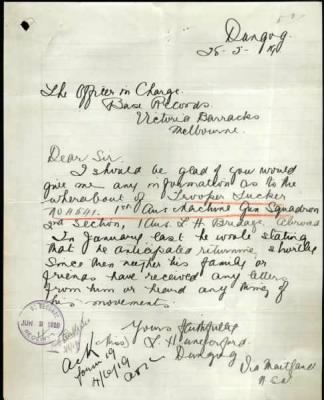 Dungog.
26-5-19
The Officer in Charge.
Base Records.
Victoria Barracks
Melbourne.
Dear Sir.
I should be glad if you would
give me any information as to the
whereabout of Trooper Tucker
1st Aus Machine Gun Squadron
2nd Section, 1 Aus. L H Bridage, Abroad
In January last he wrote stating
that he anticipated returning shortly
Since then neither his family or
friends have received any letters
from him or heard any thing of
his movements.
Yours faithfully
(Miss) L. Hungerford.
Dungog
Via Maitland
N.S.W.
Ack
form 19
4/6/19